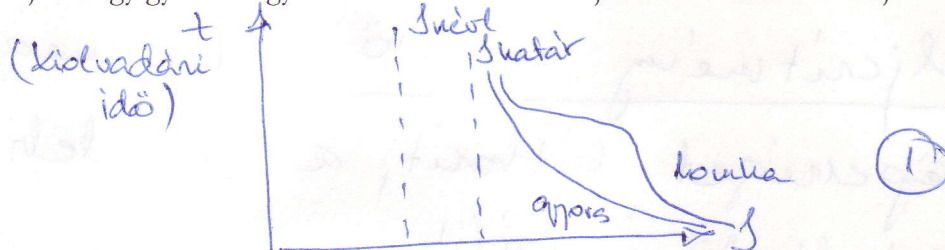 t
(kiolvadási
idő)
Inévl
Ihatár
lomha
gyors
I
1